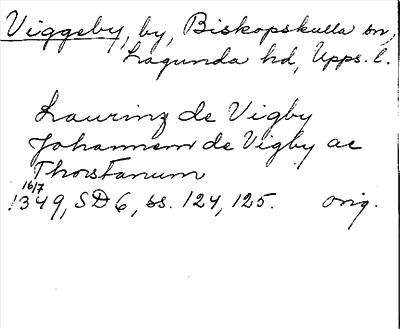 Viggeby, by, Biskopskulla sn,
Lagunda hd, Upps. l.
Laurinz de Vigby
Johannem de Vigby ac
Thorstanum
16/7
1349, SD 6, ss. 124, 125. orig.